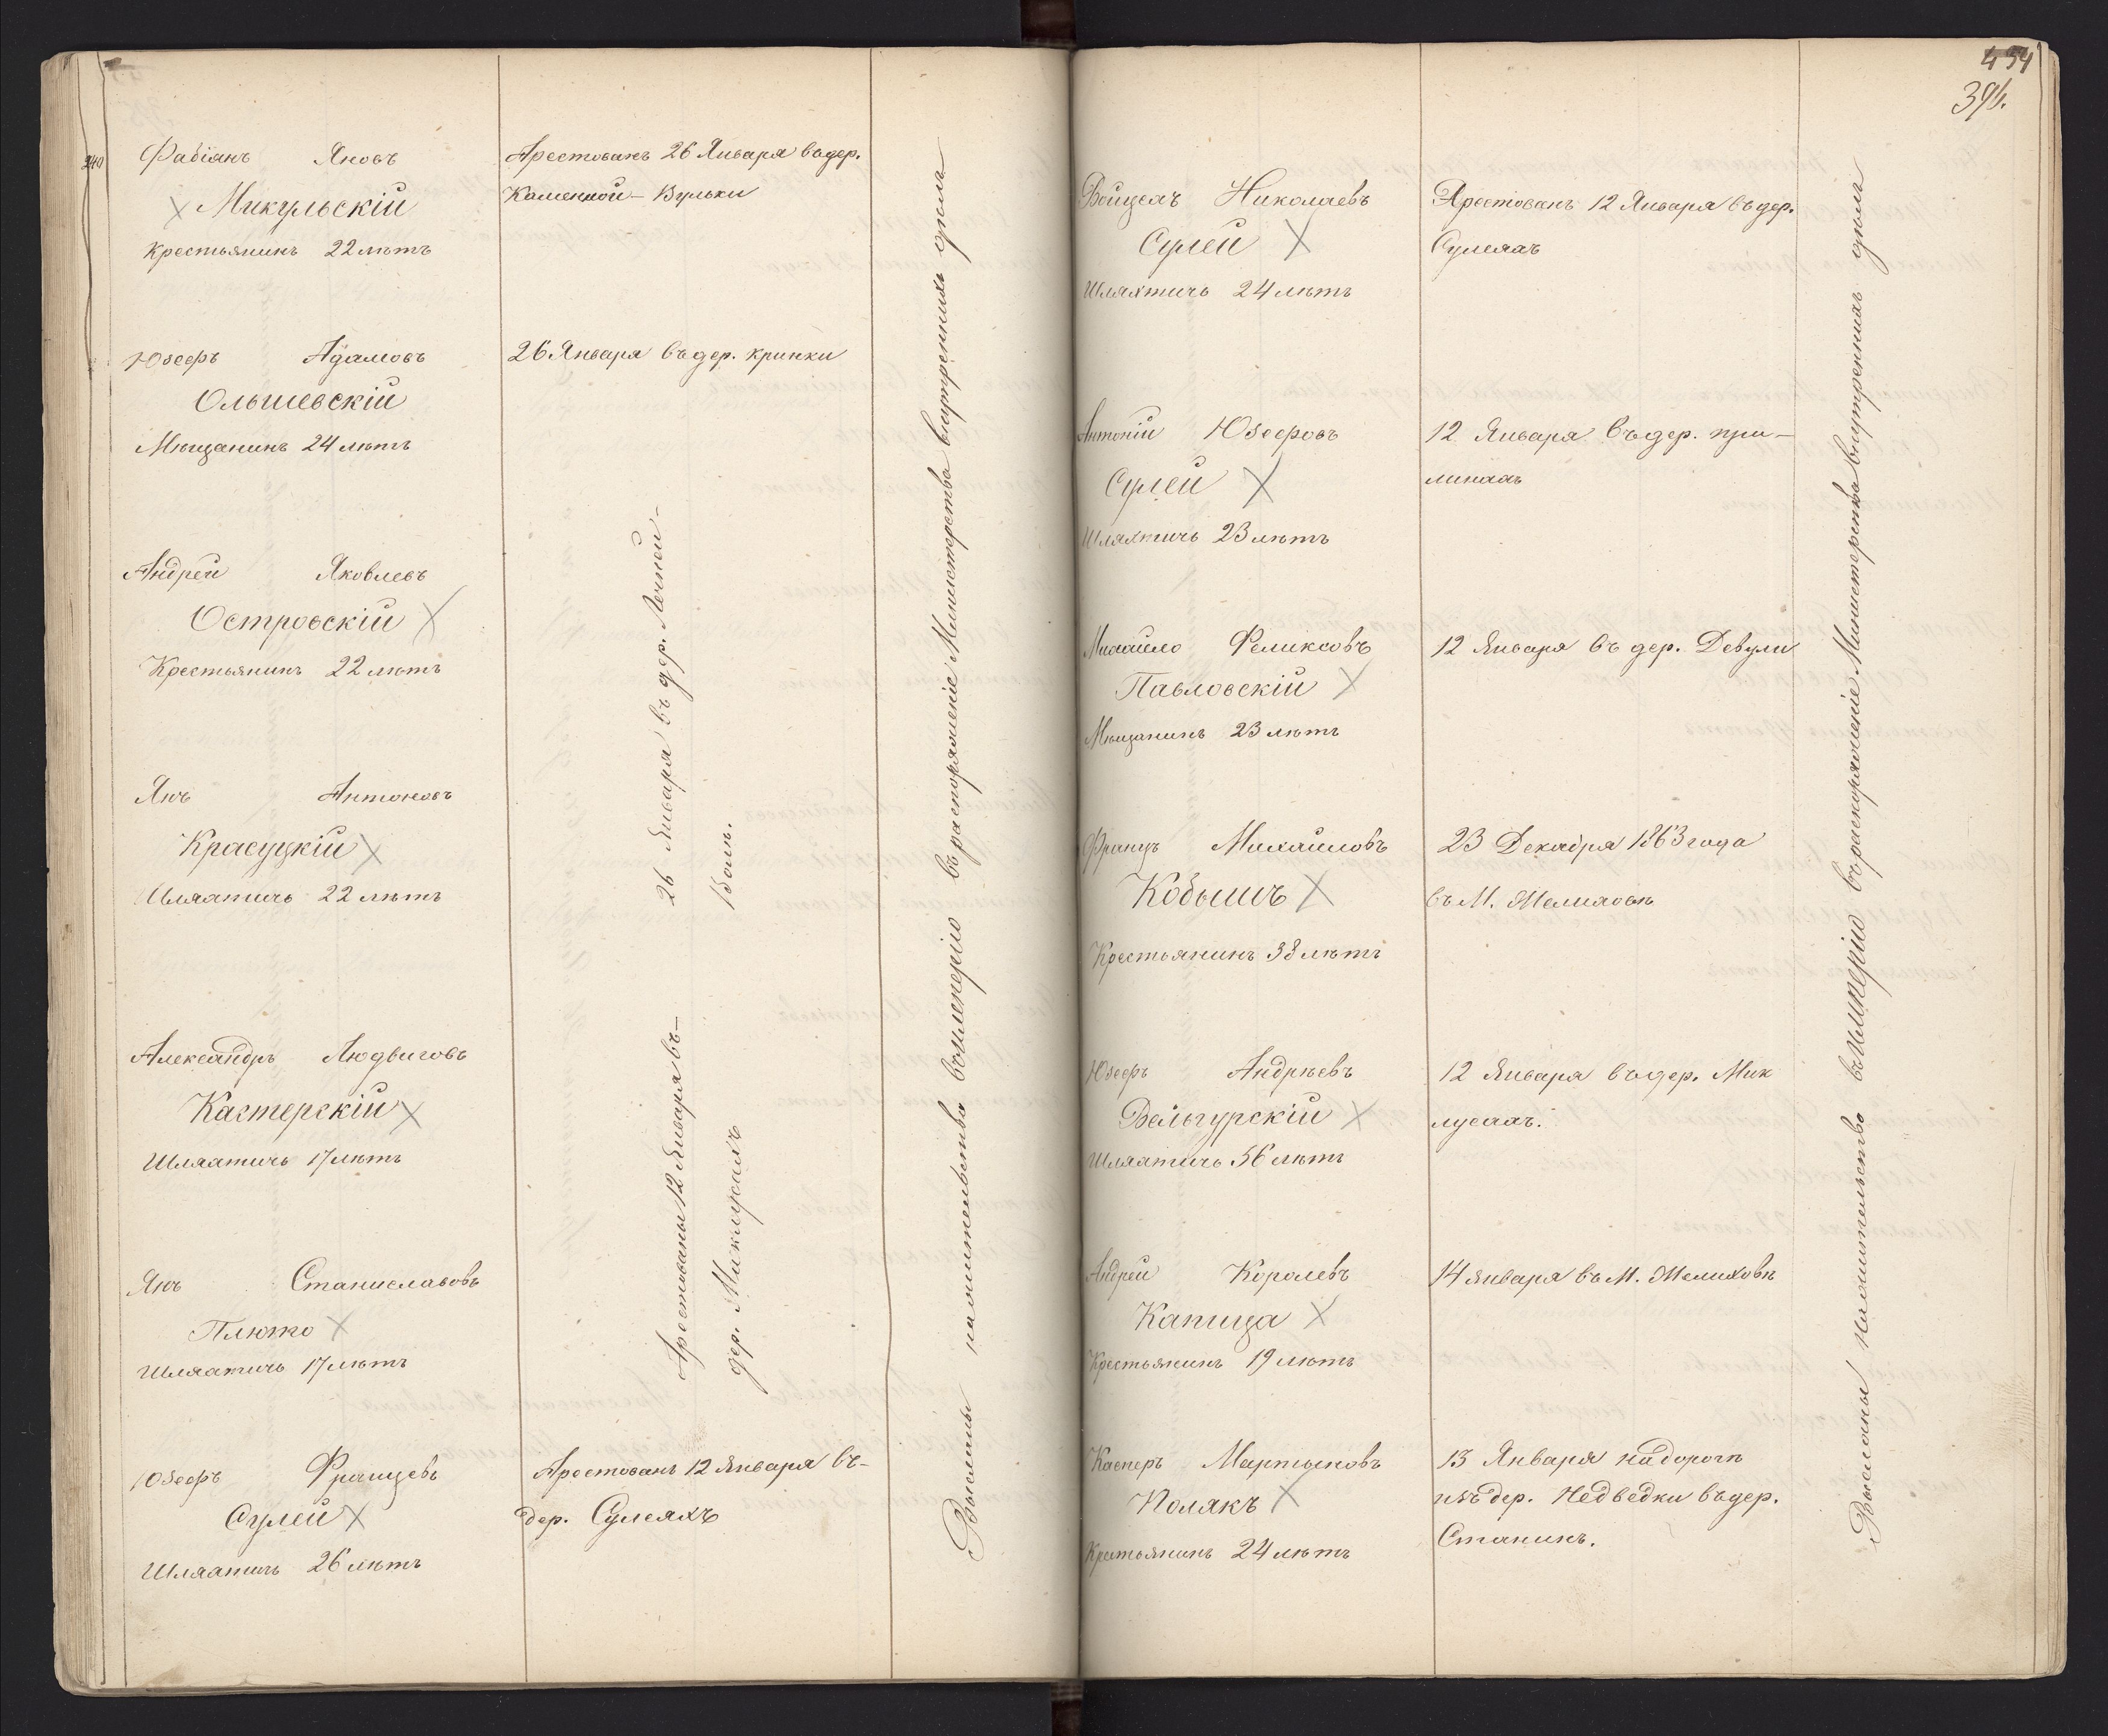 240
Фабіанъ Яновъ
Микульскій
Крестьянинъ 22 лѣтъ
Арестованъ 26 Января въ дер.
Каменной-Вульки
Юзефъ Адамовъ
Ольшевскій
Мѣщанинъ 24 лѣтъ
26 Января въ дер. Кринки
Андрей Яковлевъ
Островскій
Крестьянинъ 22 лѣтъ
Янъ Антоновъ
Красуцкій
Шляхтичь 22 лѣтъ
26 Января въ дер.
Александръ Людвиговъ
Кастерскій
Шляхтичь 17 лѣтъ
Янъ Станиславовъ
Плюто
Шляхтичь 17 лѣтъ
Арестованы 12 Января въ-
дер. Миклусахъ
Юзефъ Францевъ
Сулей
Шляхтичь 26 лѣтъ
Арестованъ 12 Января въ-
дер. Сулеяхъ
Высланы на жительство въ Имперію въ распоряженіе Министерства внутреннихъ дѣлъ
454
396.
Войцехъ Николаевъ
Сулей
Шляхтичь 24 лѣтъ
Арестованъ 12 Января въ дер.
Сулеяхъ
Антоній Юзефовъ
Сулей
Шляхтичь 23 лѣтъ
12 Января въ дер.
Михайло Феликсовъ
Павловскій
Мѣщанинъ 23 лѣтъ
12 Января въ дер. Девули
Францъ Михайловъ
Кобышъ
Крестьянинъ 38 лѣтъ
23 Декабря 1863 года
въ М. Желиховѣ
Юзефъ Андрѣевъ
Вельгурскій
Шляхтичь 56 лѣтъ
12 Января въ дер. Мик
лусахъ.
Андрей Королевъ
Капица
Крестьянинъ 19 лѣтъ
14 Января въ М. Желиховѣ
Касперъ Мартыновъ
Полякъ
Крестьянинъ 24 лѣтъ
13 Января на дорогѣ
изъ дер. Недведки въ дер.
Станинъ.
Высланы на жительство въ Имперію въ распоряженіе Министерства внутреннихъ дѣлъ